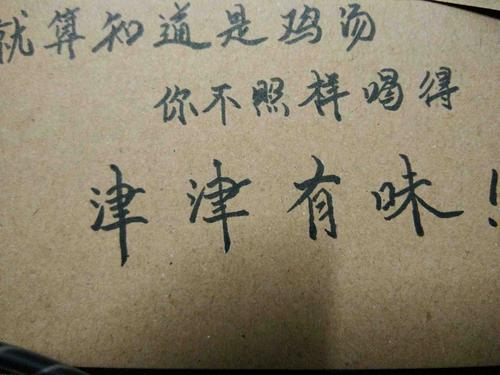 就算知道是鸡汤
你不照样喝得
津津有味!